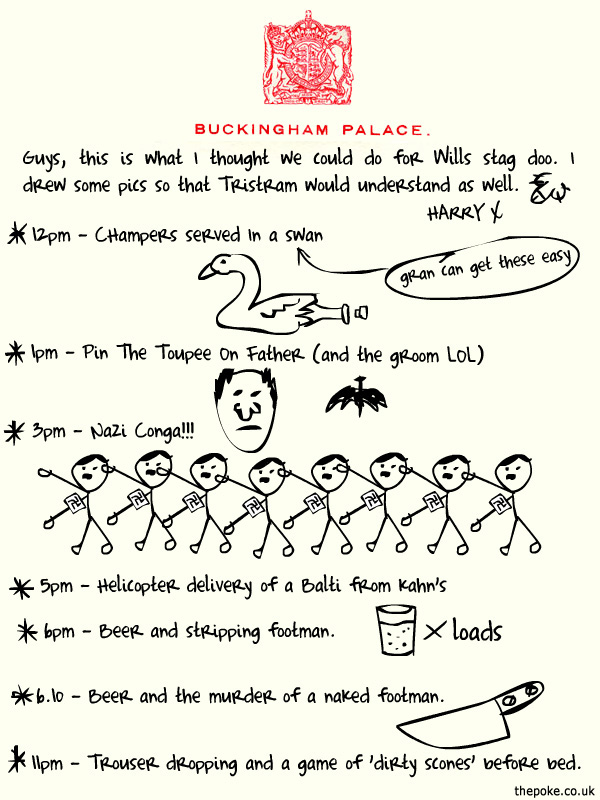 BUCKINGHAM PALACE.
Guys, this is what I thought we could do for Wills stag doo. I
drew some pics so that Tristram would understand as well.
HARRY X
12pm - Champers served in a swan
gran can get these easy
1pm - Pin The Toupee On Father (and the groom LOL)
3pm - Nazi Conga!!!
5pm - Helicopter delivery of a Balti from Kahn's
6pm - Beer and stripping footman.
X loads
6.10 - Beer and the murder of a naked footman.
11pm - Trouser dropping and a game of 'dirty scones' before bed.
thepoke.co.uk